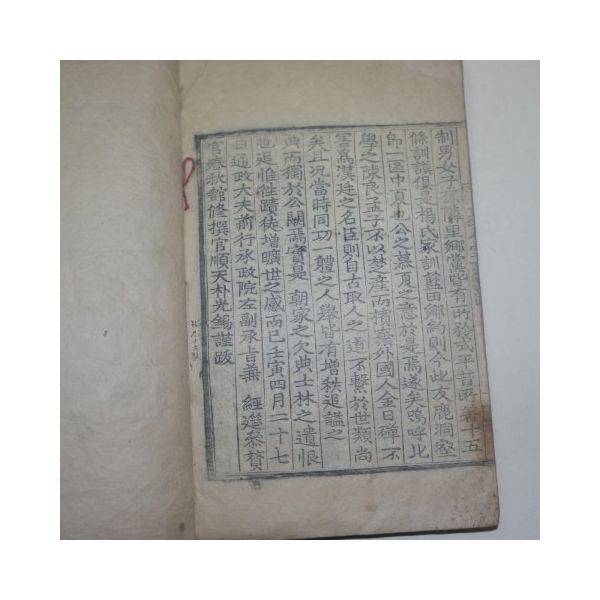 制男女子孫隣里鄕黨皆有所矜式平昔所著十五
條訓謨俱是楊氏家訓藍田鄕約則今此友鹿洞壑
卽一區中夏也公之慕夏之意於是焉遂矣嗚呼北
學之陳良孟子不以楚産而擯棄外國人金日磾不
害爲漢廷之名臣則自古取人之道不繫於世類尙
矣且况當時同功一體之人擧皆有增秩追謚之
典而獨於公闕焉實是 朝家之欠典士林之遺恨
也追惟徃蹟徒增曠世之感而已壬寅四月二十七
日通政大夫前行承政院左副承旨兼 經筵叅賛
官春秋館修撰官順天朴光錫謹跋